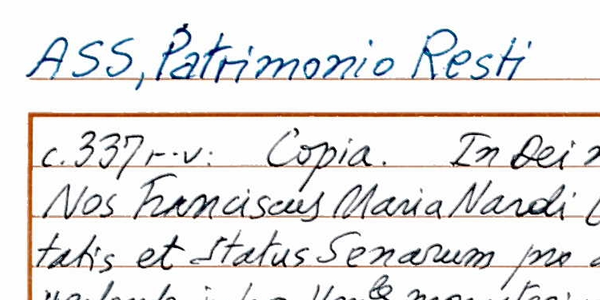 ASS, Patrimonio Resti
c. 337 r-v: Copia. In Dei
Nos Franciscus Maria Nardi
tatis et Status Senarum pro